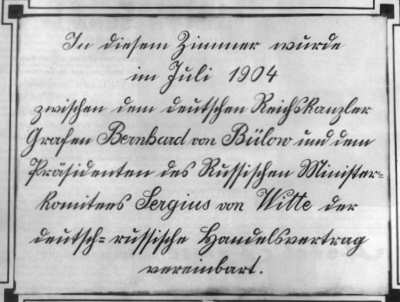 In diesem Zimmer wurde
im Juli 1904
zwischen dem deutschen Reichskanzler
Grafen Bernhard von Bülow und dem
Präsidenten des Russischen Minister-
komitees Sergius von Witte der
deutsch-russische Handelsvertrag
vereinbart.